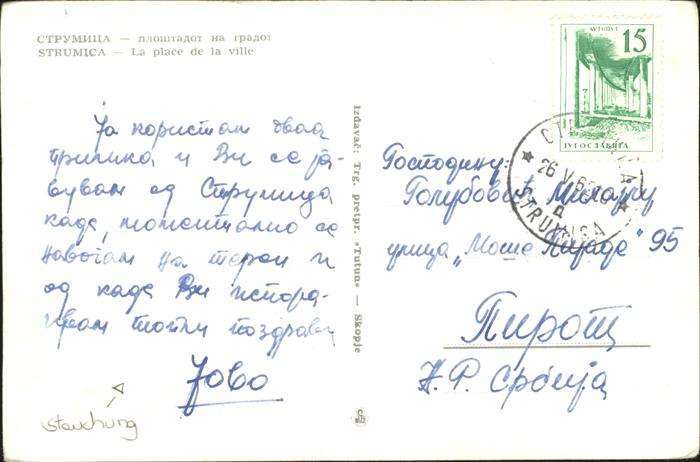 СТРУМИЦА — плоштадот на градот
STRUMICA — La place de la ville
Ја користам оваа
прилика и Ви се ја-
вувам од Струмица
каде, моментално се
наоѓам на терен и
од каде Ви испра-
ќам топли поздрави
Јово
stauchung
Izdavač: Trg. pretpr. »Tutun« — Skopje
15
ЈУГОСЛАВИЈА
26 V 62
STRUMICA
Господину:
Голубовић Милајку
улица „Моше Пијаде" 95
Пирот
Н. Р. Србија